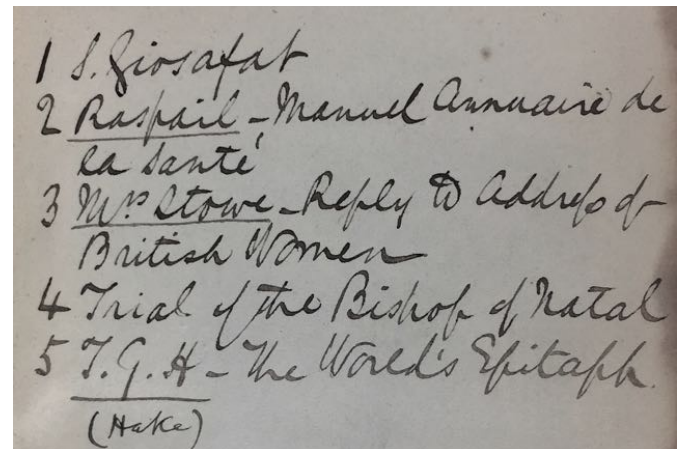 1 S. Giosafat
2 Raspail - Manuel Annuaire de
la Santé
3 Mrs Stowe - Reply to Address of
British Women
4 Trial of the Bishop of Natal
5 T. G. H - The World's Epitaph.
(Hake)